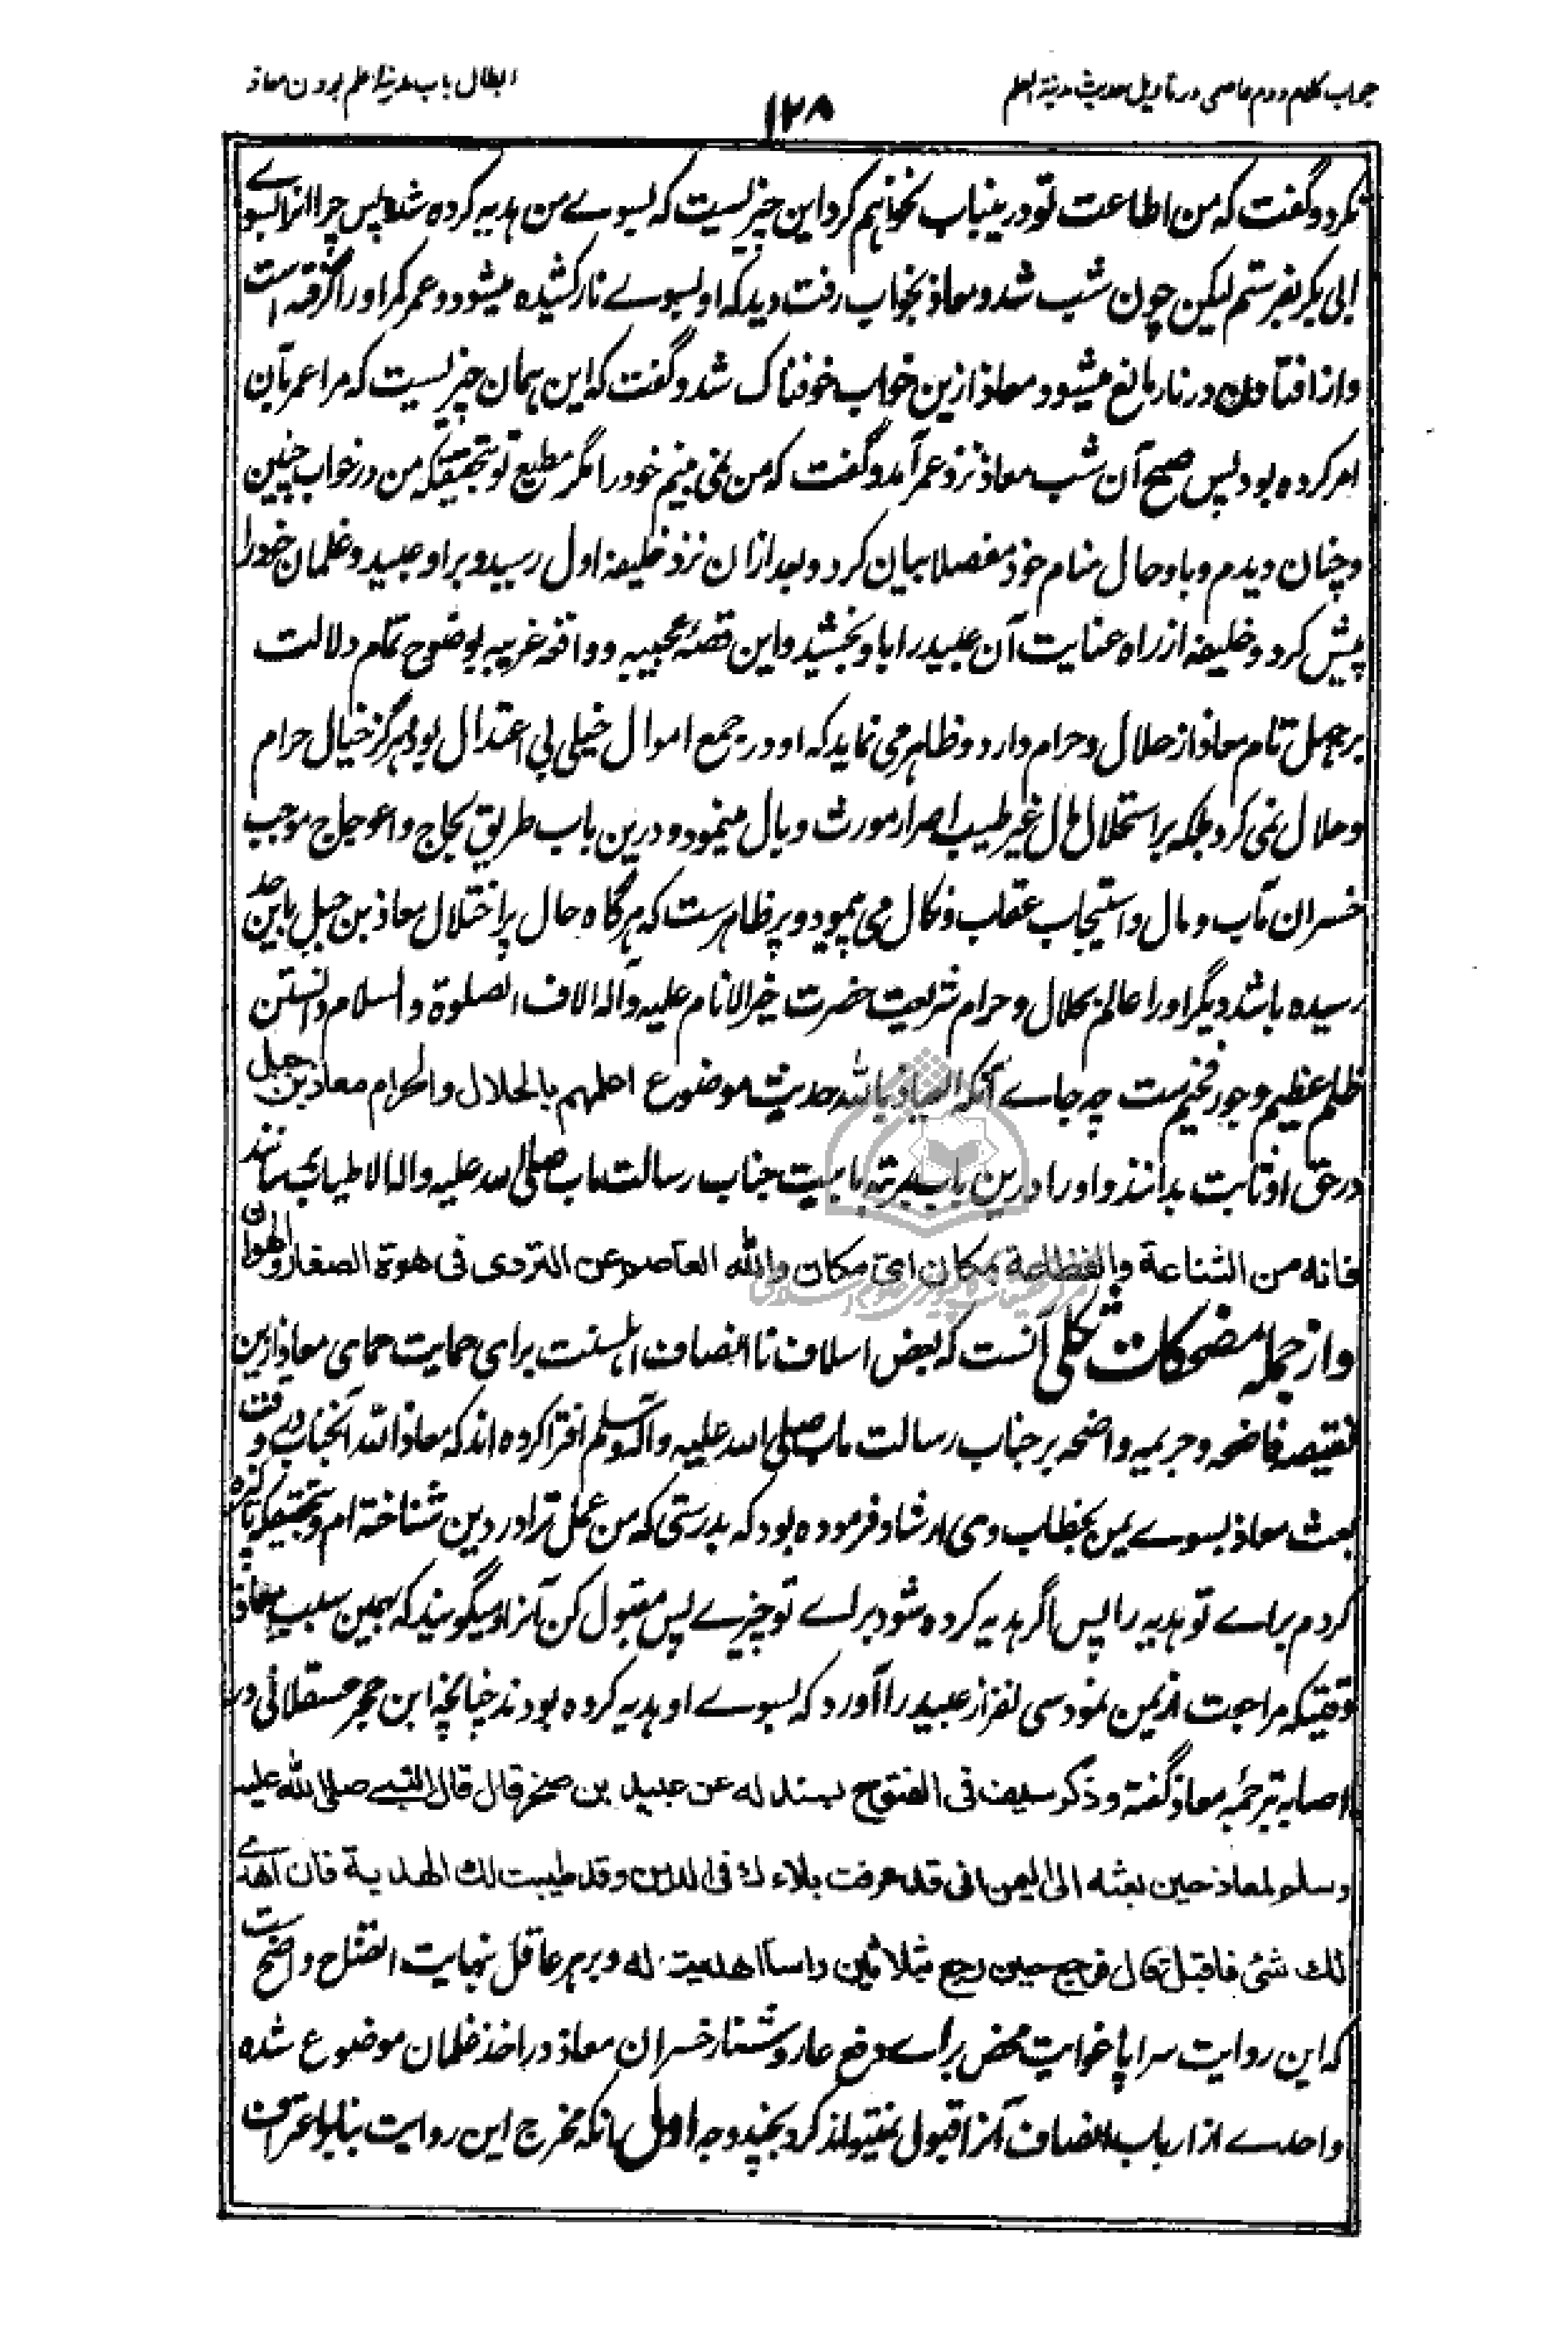 جواب کلام دوم عاصمی در تاویل حدیث مدینة العلم
ابطال باب مدینۀ علم بودن معاذ
۱۲۸
نکرد و گفت که من اطاعت تو درینباب نخواهم کرد این چیزیست که بسوے من هدیه کرده شد پس چرا انرا بسوے
ابی بکر بفرستم لیکن چون شب شد و معاذ بخواب رفت دید که او بسوے نار کشیده میشود و عمر کمر او را گرفته است
و از افتادن در نار مانع میشود و معاذ ازین خواب خوفناک شد و گفت که این همان چیزیست که مرا عمر بآن
امر کرده بود پس صبح آن شب معاذ نزد عمر آمد و گفت که من نمی بینم خود را مگر مطیع تو بتحقیقکه من در خواب چنین
و چنان دیدم و باو حال منام خود مفصلا بیان کرد و بعد ازان نزد خلیفه اول رسید و بر او عبید و غلمان خود را
پیش کرد و خلیفه از راه عنایت آن عبید را باو بخشید و این قصۀ عجیبه و واقعۀ غریبه بوضوح تمام دلالت
بر جهل تام معاذ از حلال و حرام دارد و ظاهر می نماید که او در جمع اموال خیلی بی اعتدال بود هرگز خیال حرام
و حلال نمی کرد بلکه بر استحلال مال غیر طیب اصرار مورث وبال مینمود و درین باب طریق لجاج و اعوجاج موجب
خسران مآب و مال و استیجاب عقاب و نکال می پیمود و پر ظاهرست که هرگاه حال پر اختلال معاذ بن جبل باین حد
رسیده باشد دیگر او را عالم بحلال و حرام شریعت حضرت خیر الانام علیه و آله الاف الصلوة و السلام دانستن
ظلم عظیم و جور فخیم ست چه جاے آنکه العیاذ بالله حدیث موضوع اعلمهم بالحلال والحرام معاذ بن جبل
در حق او ثابت بدانند و او را درین باب بمرتبه بابیت جناب رسالت مآب صلی الله علیه و اله الاطیاب رسانند
فانه من الشناعة والفظاعة بمکان ای مکان والله العاصم عن التردی فی هوة الصغار والهوان
و از جمله مضحکات ثکلی آنست که بعض اسلاف نا انصاف اهلسنت برای حمایت حمای معاذ ازین
نقیصه فاضحه و جریمه واضحه بر جناب رسالت مآب صلی الله علیه و آله و سلم افترا کرده اند که معاذ الله آنجناب در وقت
بعث معاذ بسوے یمن بخطاب وی ارشاد فرموده بود که بدرستی که من عمل ترا در دین شناخته ام و بتحقیقکه پاکیزه
کردم براے تو هدیه را پس اگر هدیه کرده شود براے تو چیزے پس قبول کن آنرا و میگویند که بهمین سبب معاذ
وقتیکه مراجعت از یمن نمود سی نفر از عبید را آورد که بسوے او هدیه کرده بودند چنانچه ابن حجر عسقلانی در
اصابه بترجمۀ معاذ گفته و ذکر سیف فی الفتوح بسند له عن عبید بن صخر قال قال النبے صلی الله علیه
وسلم لمعاذ حین بعثه الی الیمن انی قد عرفت بلاءك فی الدین و قد طیبت لك الهدیة فان اهدے
لك شئ فاقبل قال فرجع حین رجع بثلاثین راسا اهدیت له و بر هر عاقل نهایت الضاح واضح ست
که این روایت سراپا غوایت محض براے دفع عار و شنار خسران معاذ در اخذ غلمان موضوع شده
و احدے از ارباب انصاف آنرا قبول نمیتواند کرد بچند وجه اول آنکه مخرج این روایت بنا بر اعتراف